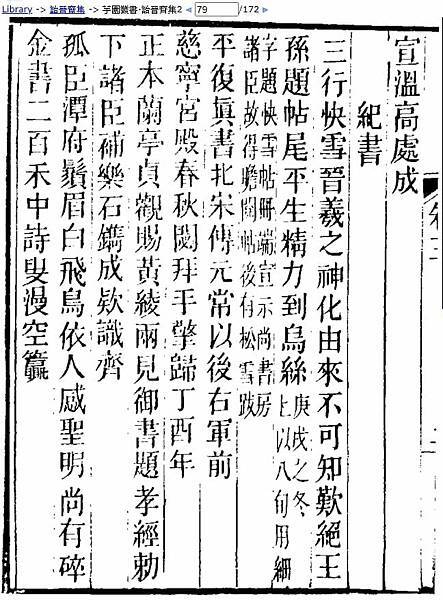 Library -> 詒晉齋集 -> 芋園叢書·詒晉齋集2 79 /172
宣溫高處成
紀書
三行快雪晉羲之神化由來不可知歎絕王
孫題帖尾平生精力到烏絲
庚戌之冬
上以八旬用細
字題快雪帖冊端宣示尚書房
諸臣故得瞻閱帖後有松雪跋
平復眞書北宋傳元常以後右軍前
慈寧宮殿春秋閟拜手擎歸丁酉年
正本蘭亭貞觀賜黃綾兩見御書題孝經勅
下諸臣補樂石鐫成欵識齊
孤臣潭府鬚眉白飛鳥依人感聖明尚有碎
金書二百禾中詩叟漫空籯